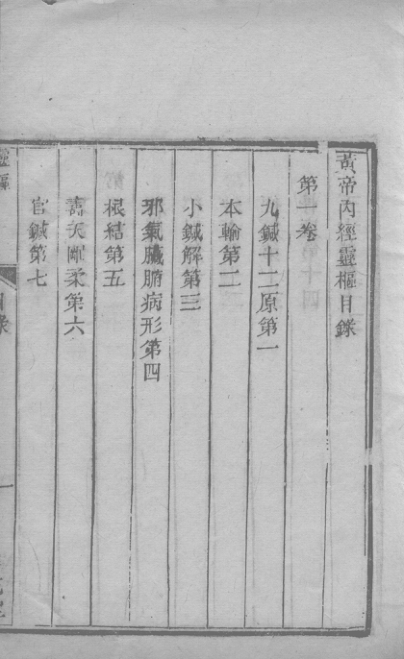 黃帝內經靈樞目錄
第一卷
九鍼十二原第一
本輸第二
小鍼解第三
邪氣臟腑病形第四
根結第五
壽夭剛柔第六
官鍼第七
靈樞
目錄